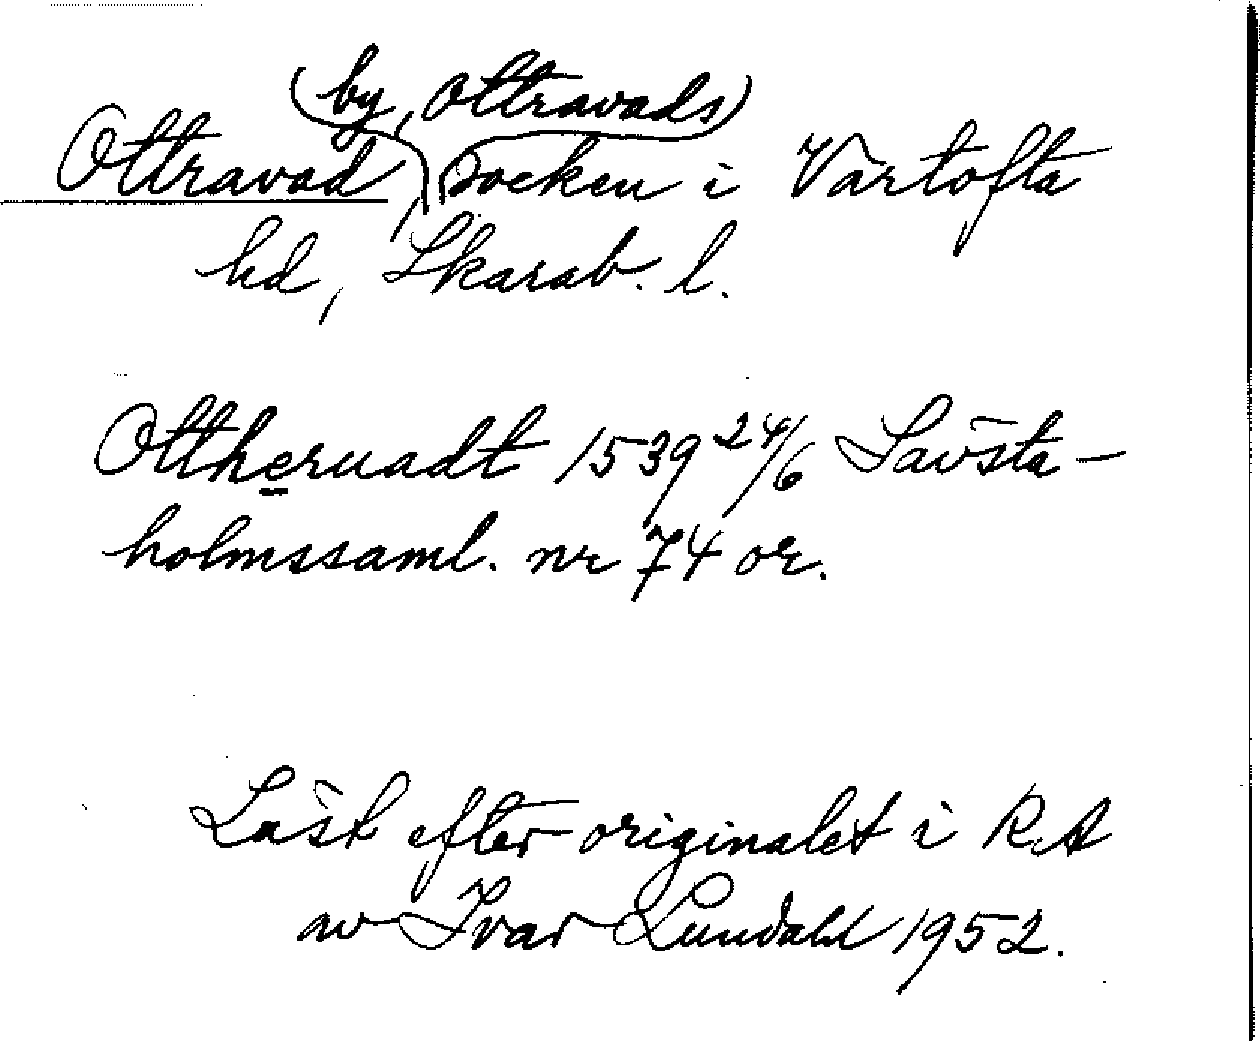 (by, Ottravads)
Ottravad, socken i Vartofta
hd, Skarab. l.
Ottheruadt 1539 24/6 Sävsta-
holmssaml. nr 74 or.
Läst efter originalet i R.A
av Ivar Lundahl 1952.